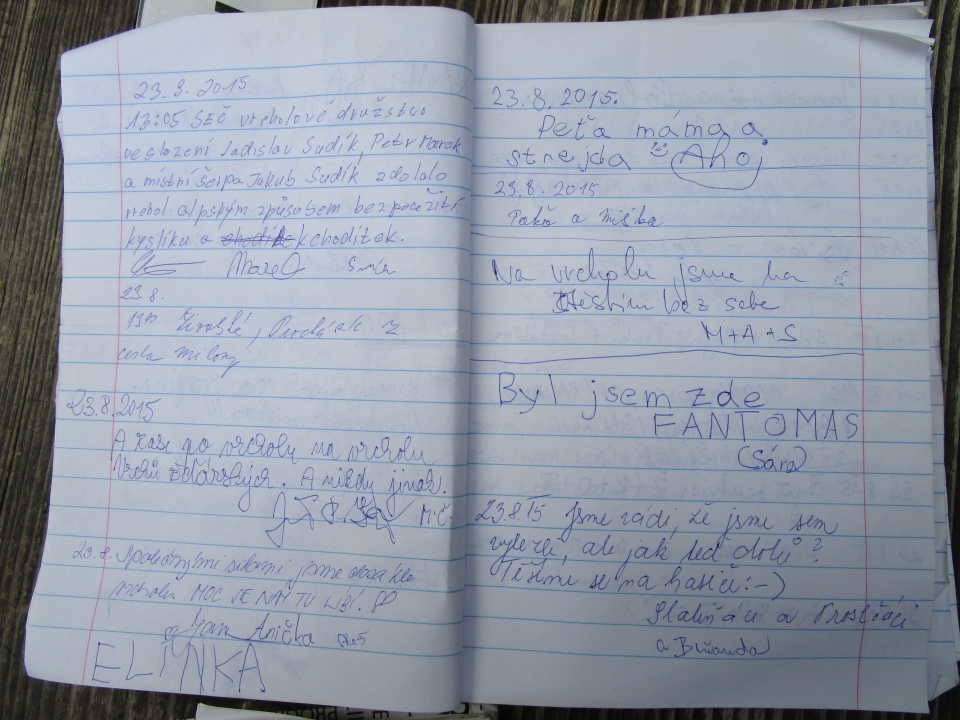 23.8.2015
13:05 SEČ vrcholové družstvo
ve složení Ladislav Sudík, Petr Marek
a místní šerpa Jakub Sudík zdolalo
vrchol alpským způsobem bez použití
kyslíku a k choditek.
Marek
23.8.
z
23.8.2015
A zase po vrcholu na vrcholu
. A nikdy jinak.
M.Č.
23.8. Společnými silami jsme dosáhli
vrcholu. MOC SE NÁM TU LÍBÍ.
Jana Anička
ELINKA
23.8.2015.
Peťa máma a
strejda Ahoj
23.8.2015
a Miška
Na vrcholu jsme ha
štěstím bez sebe
M+A+S
Byl jsem zde
FANTOMAS
(Sára)
23.8.15 Jsme rádi, že jsme sem
vylezli, ale jak teď dolů?
Těšíme se na hasiče:-)
a
a